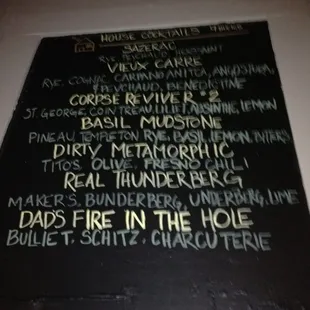 HOUSE COCKTAILS
SAZERAC
RYE, PEYCHAUD, HERBSAINT
VIEUX CARRE
RYE, COGNAC, CARPANO ANTICA, ANGOSTURA,
PEYCHAUD, BENEDICTINE
CORPSE REVIVER #2
ST. GEORGE, COINTREAU, LILLET, ABSINTHE, LEMON
BASIL MUDSTONE
PINEAU, TEMPLETON RYE, BASIL, LEMON, BITTERS
DIRTY METAMORPHIC
TITO'S, OLIVE, FRESNO CHILI
REAL THUNDERBERG
MAKERS, BUNDERBERG, UNDERBERG, LIME
DAD'S FIRE IN THE HOLE
BULLIET, SCHITZ, CHARCUTERIE